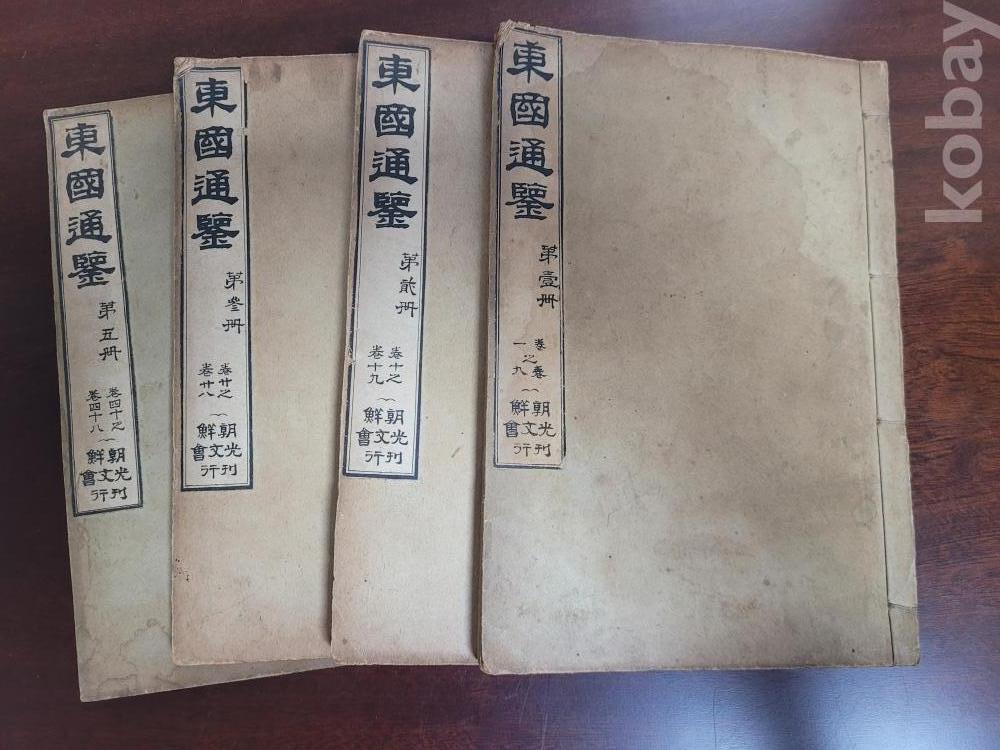 東國通鑒
第壹冊
卷一之卷九
朝鮮光文會刊行
東國通鑒
第貳冊
卷十之
卷十九
朝鮮光文會刊行
東國通鑒
第叁冊
卷廿之
卷廿八
朝鮮光文會刊行
東國通鑒
第五冊
卷四十之
卷四十八
朝鮮光文會刊行
kobay